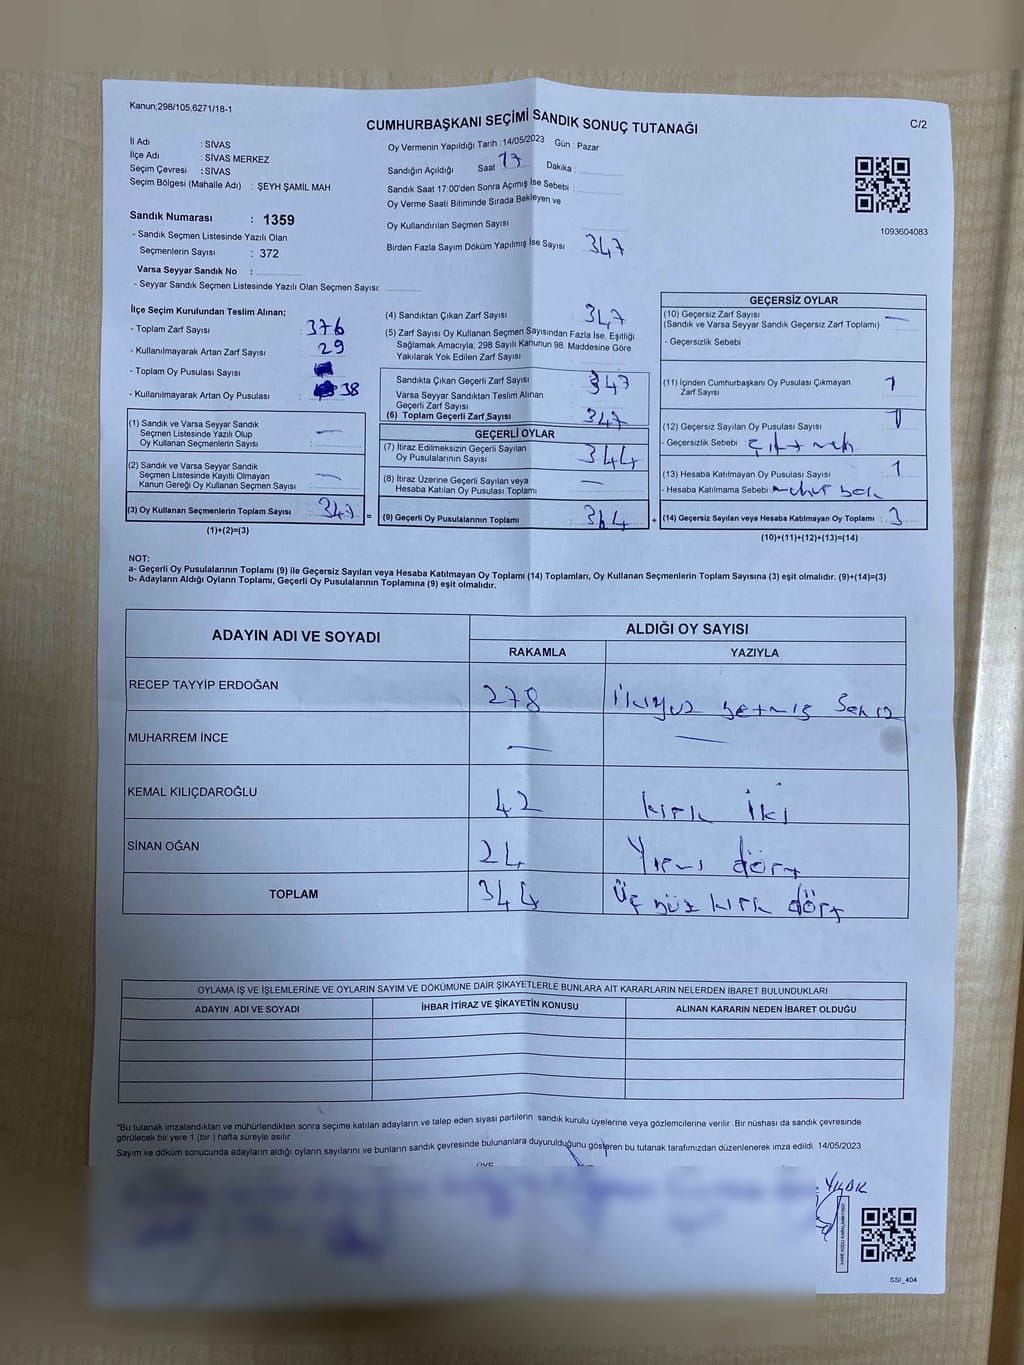 Kanun;298/105,6271/18-1
CUMHURBAŞKANI SEÇİMİ SANDIK SONUÇ TUTANAĞI
C/2
İl Adı : SİVAS
İlçe Adı : SİVAS MERKEZ
Seçim Çevresi : SİVAS
Seçim Bölgesi (Mahalle Adı) : ŞEYH ŞAMİL MAH.
Sandık Numarası : 1359
- Sandık Seçmen Listesinde Yazılı Olan
Seçmenlerin Sayısı : 372
Varsa Seyyar Sandık No :
- Seyyar Sandık Seçmen Listesinde Yazılı Olan Seçmen Sayısı:
Oy Vermenin Yapıldığı Tarih : 14/05/2023 Gün : Pazar
Sandığın Açıldığı Saat 17 Dakika :
Sandık Saat 17:00'den Sonra Açımış İse Sebebi :
Oy Verme Saati Bitiminde Sırada Bekleyen ve
Oy Kullandırılan Seçmen Sayısı
Birden Fazla Sayım Döküm Yapılmış İse Sayısı 347
1093604083
İlçe Seçim Kurulundan Teslim Alınan;
- Toplam Zarf Sayısı : 376
- Kullanılmayarak Artan Zarf Sayısı : 29
- Toplam Oy Pusulası Sayısı :
- Kullanılmayarak Artan Oy Pusulası : 38
(1) Sandık ve Varsa Seyyar Sandık
Seçmen Listesinde Yazılı Olup
Oy Kullanan Seçmenlerin Sayısı : —
(2) Sandık ve Varsa Seyyar Sandık
Seçmen Listesinde Kayıtlı Olmayan
Kanun Gereği Oy Kullanan Seçmen Sayısı : —
(3) Oy Kullanan Seçmenlerin Toplam Sayısı : 347 =
(1)+(2)=(3)
(4) Sandıktan Çıkan Zarf Sayısı 347
(5) Zarf Sayısı Oy Kullanan Seçmen Sayısından Fazla İse, Eşitliği
Sağlamak Amacıyla; 298 Sayılı Kanunun 98. Maddesine Göre
Yakılarak Yok Edilen Zarf Sayısı
Sandıkta Çıkan Geçerli Zarf Sayısı 347
Varsa Seyyar Sandıktan Teslim Alınan
Geçerli Zarf Sayısı
(6) Toplam Geçerli Zarf Sayısı 347
GEÇERLİ OYLAR
(7) İtiraz Edilmeksizin Geçerli Sayılan
Oy Pusulalarının Sayısı 344
(8) İtiraz Üzerine Geçerli Sayılan veya
Hesaba Katılan Oy Pusulası Toplamı —
(9) Geçerli Oy Pusulalarının Toplamı +
GEÇERSİZ OYLAR
(10) Geçersiz Zarf Sayısı —
(Sandık ve Varsa Seyyar Sandık Geçersiz Zarf Toplamı) :
- Geçersizlik Sebebi :
(11) İçinden Cumhurbaşkanı Oy Pusulası Çıkmayan
Zarf Sayısı 1
(12) Geçersiz Sayılan Oy Pusulası Sayısı 1
- Geçersizlik Sebebi
(13) Hesaba Katılmayan Oy Pusulası Sayısı 1
- Hesaba Katılmama Sebebi
(14) Geçersiz Sayılan veya Hesaba Katılmayan Oy Toplamı : 3
(10)+(11)+(12)+(13)=(14)
NOT:
a- Geçerli Oy Pusulalarının Toplamı (9) ile Geçersiz Sayılan veya Hesaba Katılmayan Oy Toplamı (14) Toplamları, Oy Kullanan Seçmenlerin Toplam Sayısına (3) eşit olmalıdır. (9)+(14)=(3)
b- Adayların Aldığı Oyların Toplamı, Geçerli Oy Pusulalarının Toplamına (9) eşit olmalıdır.
ADAYIN ADI VE SOYADI ALDIĞI OY SAYISI
RAKAMLA YAZIYLA
RECEP TAYYİP ERDOĞAN 278 İkiyüz yetmiş Sekiz
MUHARREM İNCE — —
KEMAL KILIÇDAROĞLU 42 kırk iki
SİNAN OĞAN 24 Yirmi dört
TOPLAM 344 Üç yüz kırk dört
OYLAMA İŞ VE İŞLEMLERİNE VE OYLARIN SAYIM VE DÖKÜMÜNE DAİR ŞİKAYETLERLE BUNLARA AİT KARARLARIN NELERDEN İBARET BULUNDUKLARI
ADAYIN ADI VE SOYADI İHBAR İTİRAZ VE ŞİKAYETİN KONUSU ALINAN KARARIN NEDEN İBARET OLDUĞU
*Bu tutanak imzalandıktan ve mühürlendikten sonra seçime katılan adayların ve talep eden siyasi partilerin sandık kurulu üyelerine veya gözlemcilerine verilir .Bir nüshası da sandık çevresinde
görülecek bir yere 1 (bir ) hafta süreyle asılır.
Sayım ve döküm sonucunda adayların aldığı oyların sayılarını ve bunların sandık çevresinde bulunanlara duyurulduğunu gösteren bu tutanak tarafımızdan düzenlenerek imza edildi. 14/05/2023
ÜYE
SSI_404